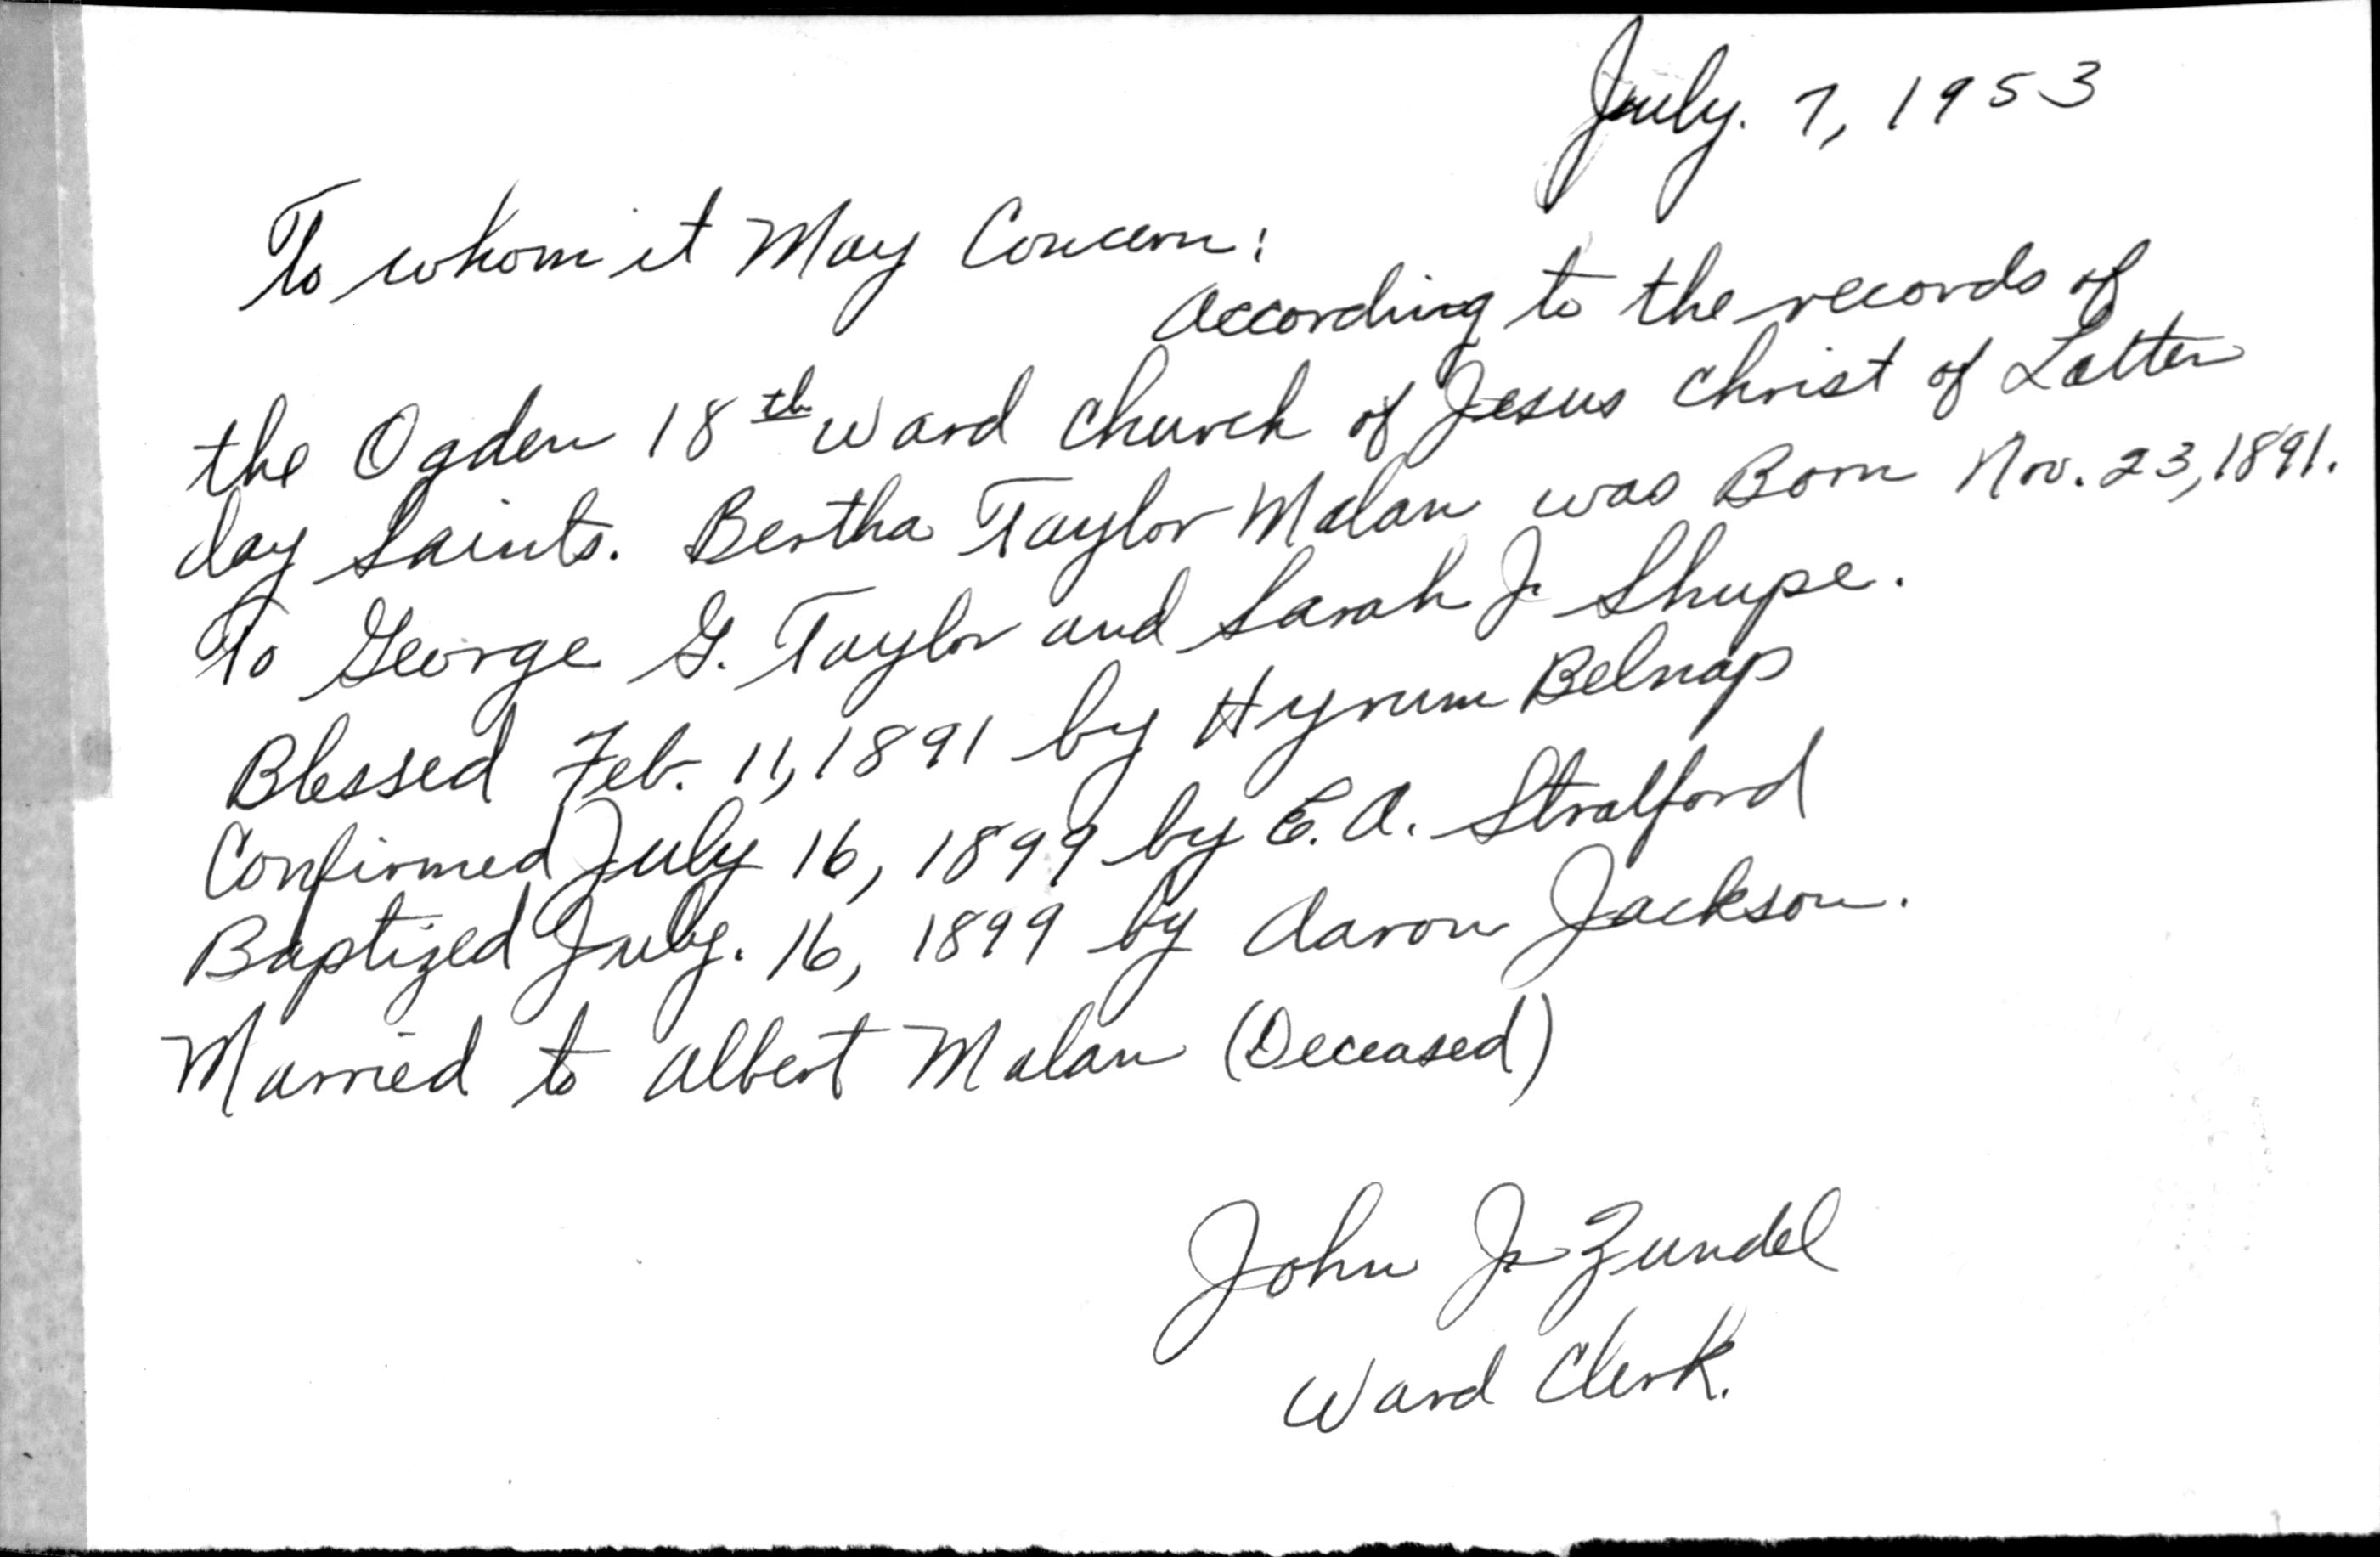 July. 7, 1953
To whom it May Concern:
according to the records of
the Ogden 18th ward church of Jesus Christ of Latter
day Saints. Bertha Taylor Malan was Born Nov. 23, 1891.
To George G. Taylor and Sarah J. Shupe.
Blessed Feb. 11, 1891 by Hyrum Belnap
Confirmed July 16, 1899 by E. A. Stratford
Baptized July. 16, 1899 by Aaron Jackson.
Married to Albert Malan (Deceased)
John J. Zundel
Ward Clerk.